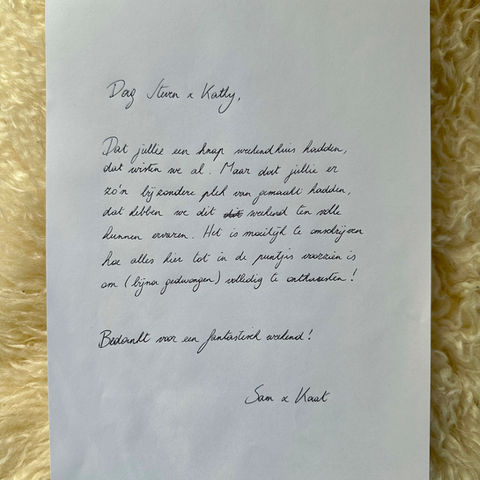 Dag Steven & Kathy,
Dat jullie een knap weekendhuis hadden,
dat wisten we al. Maar dat jullie er
zo'n bijzondere plek van gemaakt hadden,
dat hebben we dit weekend ten volle
kunnen ervaren. Het is moeilijk te omschrijven
hoe alles hier tot in de puntjes voorzien is
om (bijna gedwongen) volledig te onthaasten!
Bedankt voor een fantastisch weekend!
Sam & Kaat